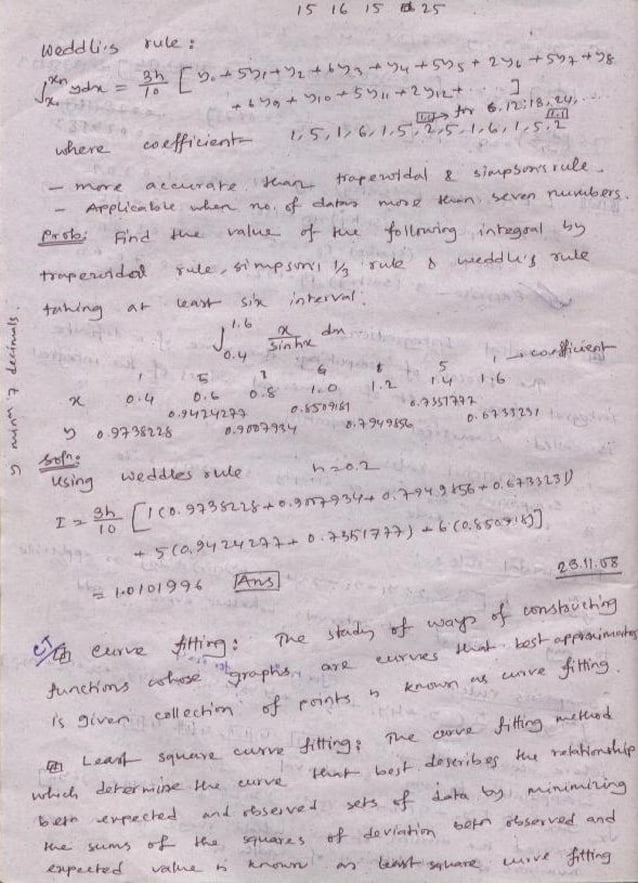 15 16 15 25
Weddli's rule :
∫ₓ₀^xn ydx = 3h/10 [ y₀ + 5y₁ + y₂ + 6y₃ + y₄ + 5y₅ + 2y₆ + 5y₇ + y₈
+ 6y₉ + y₁₀ + 5y₁₁ + 2y₁₂ + ... ]
for 6, 12, 18, 24, ...
where coefficient 1, 5, 1, 6, 1, 5, 2, 5, 1, 6, 1, 5, 2
- more accurate than trapezoidal & simpson's rule.
- Applicable when no. of datas more than seven numbers.
Prob: Find the value of the following integral by
trapezoidal rule, simpson's 1/3 rule & weddle's rule
taking at least six interval.
∫₀.₄^1.6 x/sinhx dx
1 5 1 6 1 5 1 → coefficient
x 0.4 0.6 0.8 1.0 1.2 1.4 1.6
0.9424277 0.8509181 0.7351777
y 0.9738228 0.9007934 0.7949856 0.6733231
y minm 7 decimals.
Soln:
Using weddles rule h = 0.2
I = 3h/10 [ 1 (0.9738228 + 0.9007934 + 0.7949856 + 0.6733231)
+ 5 (0.9424277 + 0.7351777) + 6 (0.8509181)]
= 1.0101996 Ans
23.11.08
Curve fitting : The study of ways of constructing
functions whose graphs are curves that best approximates
is given collection of points is known as curve fitting.
Least square curve fitting : The curve fitting method
which determine the curve that best describes the relationship
betn expected and observed sets of data by minimizing
the sums of the squares of deviation betn observed and
expected value is known as least square curve fitting